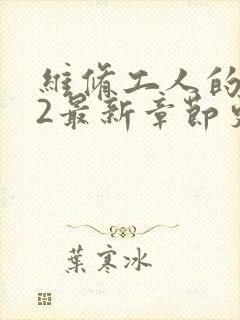 维修工人的
2最新章节
葉寒冰